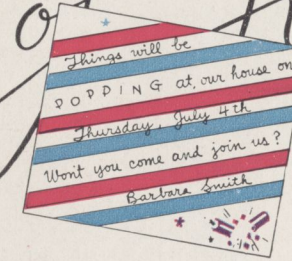 Things will be
POPPING at our house on
Thursday, July 4th
Won't you come and join us?
Barbara Smith